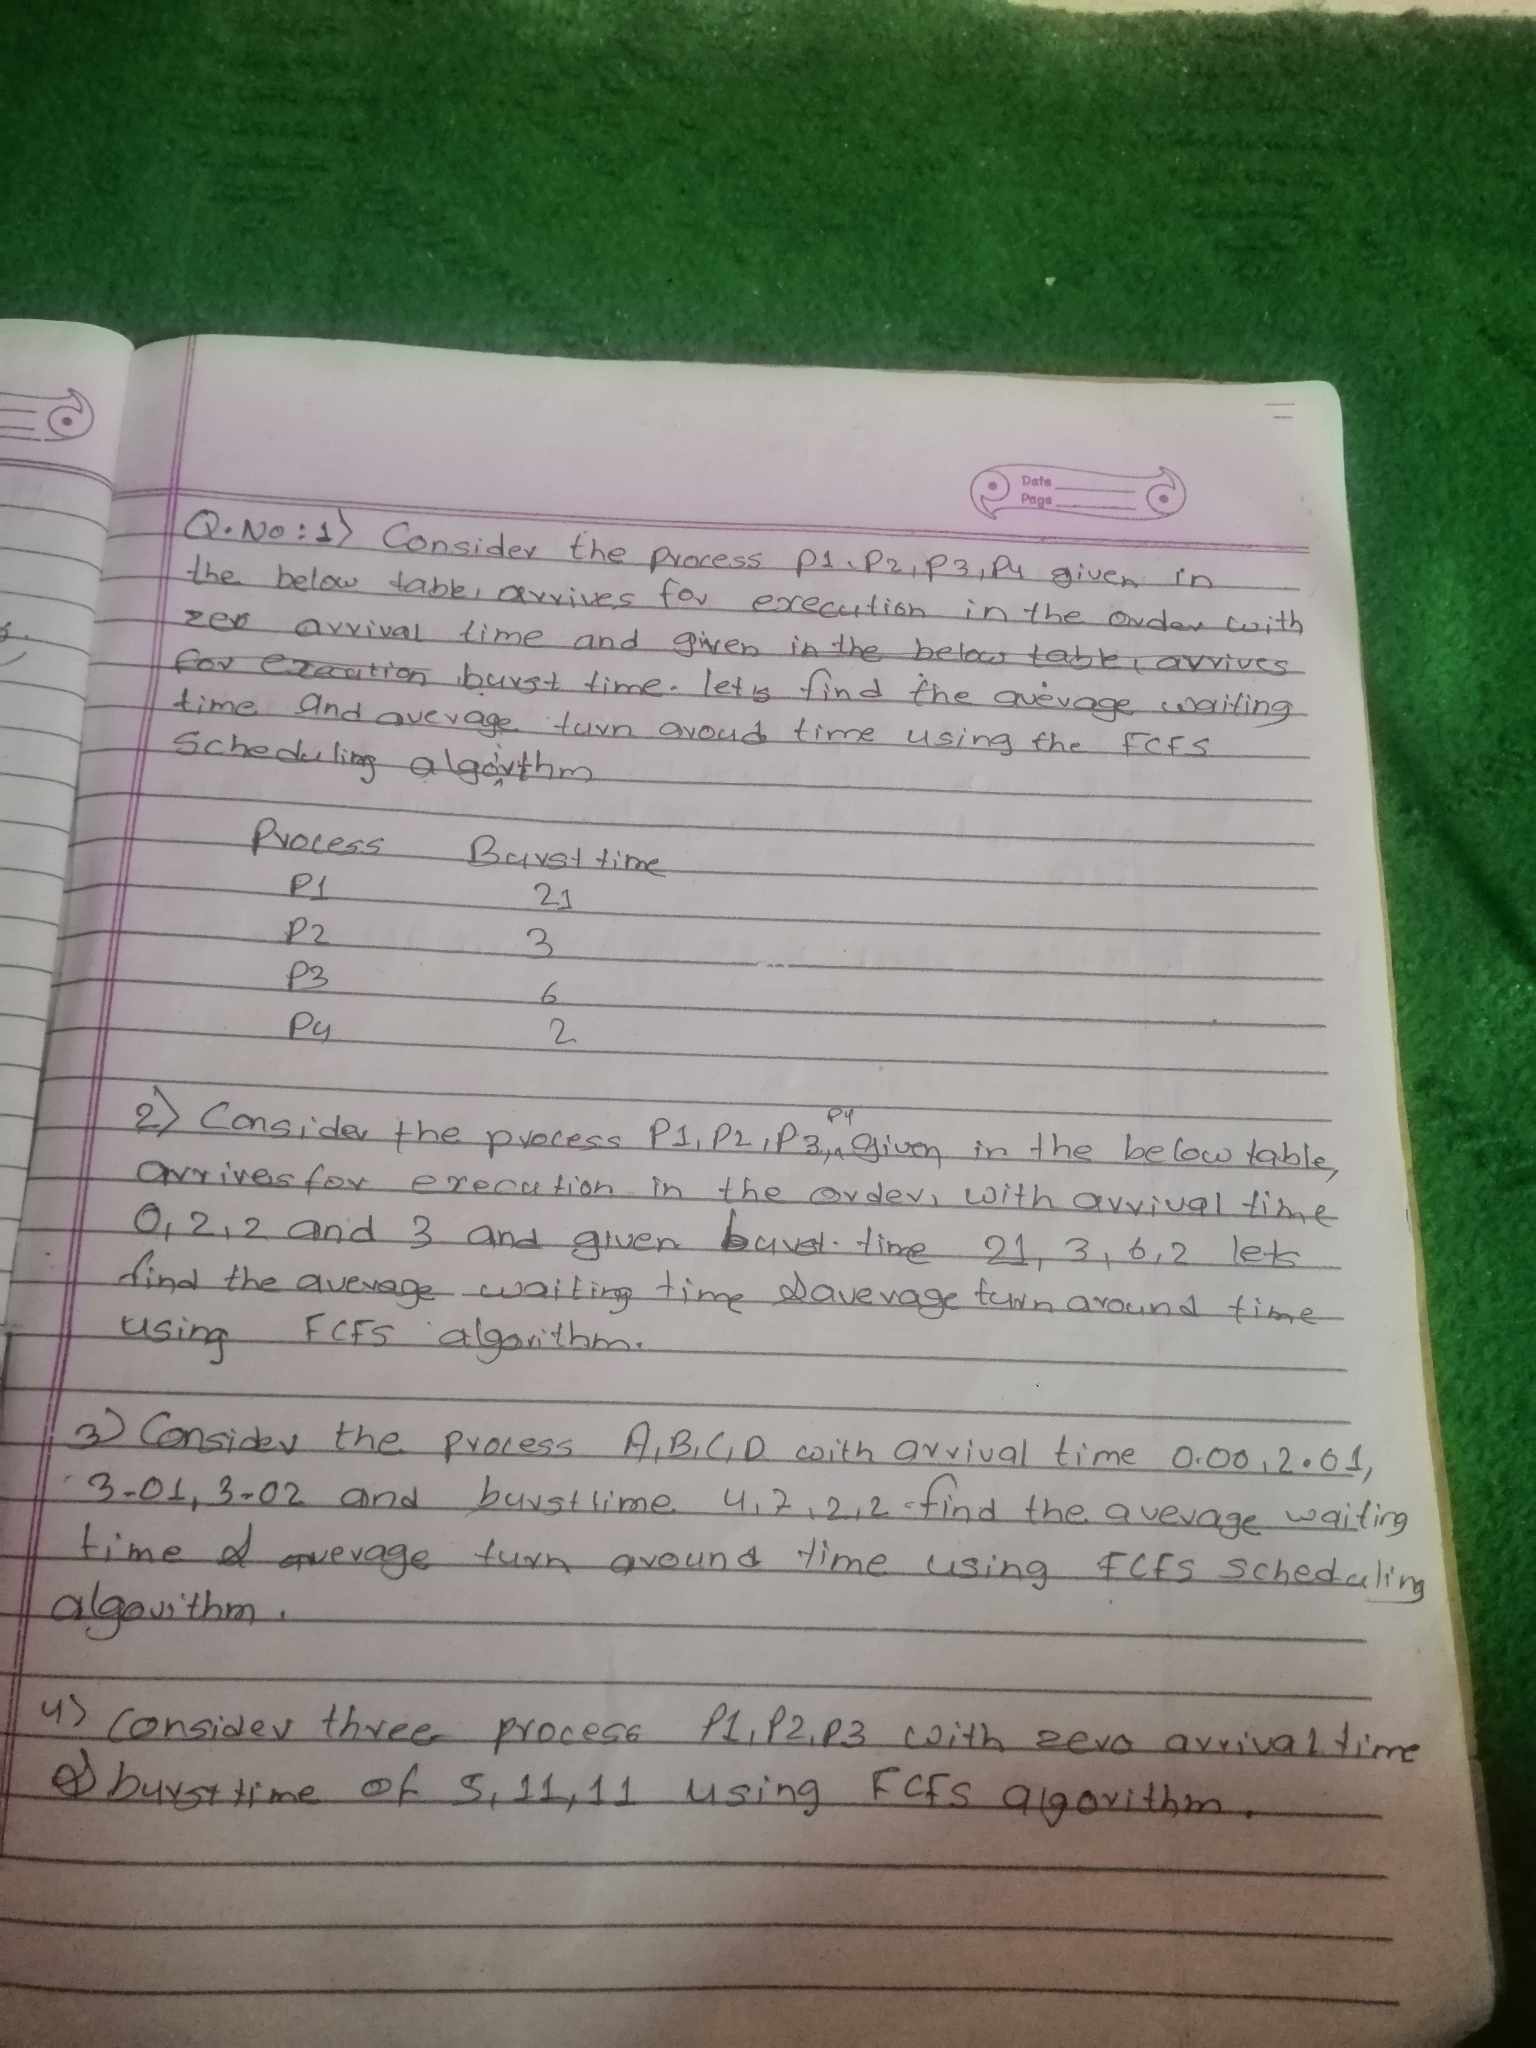 Date
Page
Q.No:1) Consider the process P1, P2, P3, P4 given in
the below table, arrives for execution in the order with
zero arrival time and given in the below table, arrives
for execution burst time. lets find the average waiting
time and average turn aroud time using the FCFS
Scheduling algorithm
Process Burst time
P1 21
P2 3
P3 6
P4 2
2) Consider the process P1, P2, P3, P4 given in the below table,
arrives for execution in the order, with arrival time
0, 2, 2 and 3 and given burst time 21, 3, 6, 2 lets
find the average waiting time & average turn around time
using FCFS algorithm.
3) Consider the process A, B, C, D with arrival time 0.00, 2.01,
3.01, 3.02 and burst time 4, 7, 2, 2 find the average waiting
time & average turn around time using FCFS Scheduling
algorithm.
4) Consider three process P1, P2, P3 with zero arrival time
& burst time of 5, 11, 11 using FCFS algorithm.